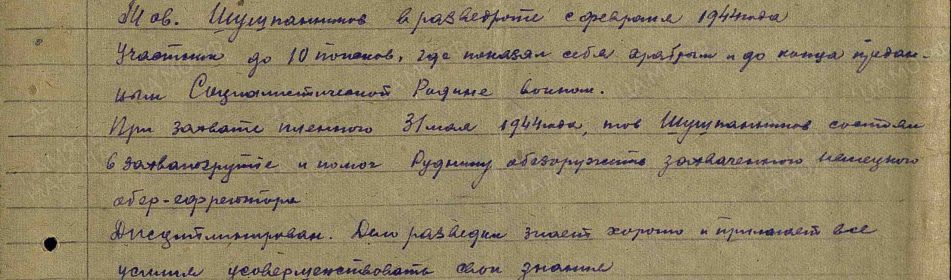 Тов. Шушпанников в разведроте с февраля 1944 года
Участник до 10 поисков, где показал себя храбрым и до конца предан-
ным Социалистической Родине воином.
При захвате пленного 31 мая 1944 года, тов Шушпанников состоял
в захватгруппе и помог Руднику обезоружить захваченного немецкого
обер-ефрейтора
Дисциплинирован. Дело разведки знает хорошо и прилагает все
усилия усовершенствовать свои знания